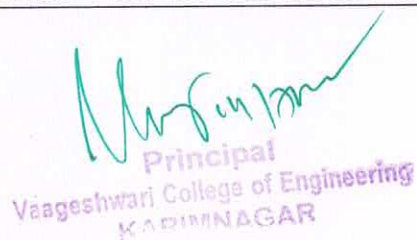 Principal
Vaageshwari College of Engineering
KARIMNAGAR